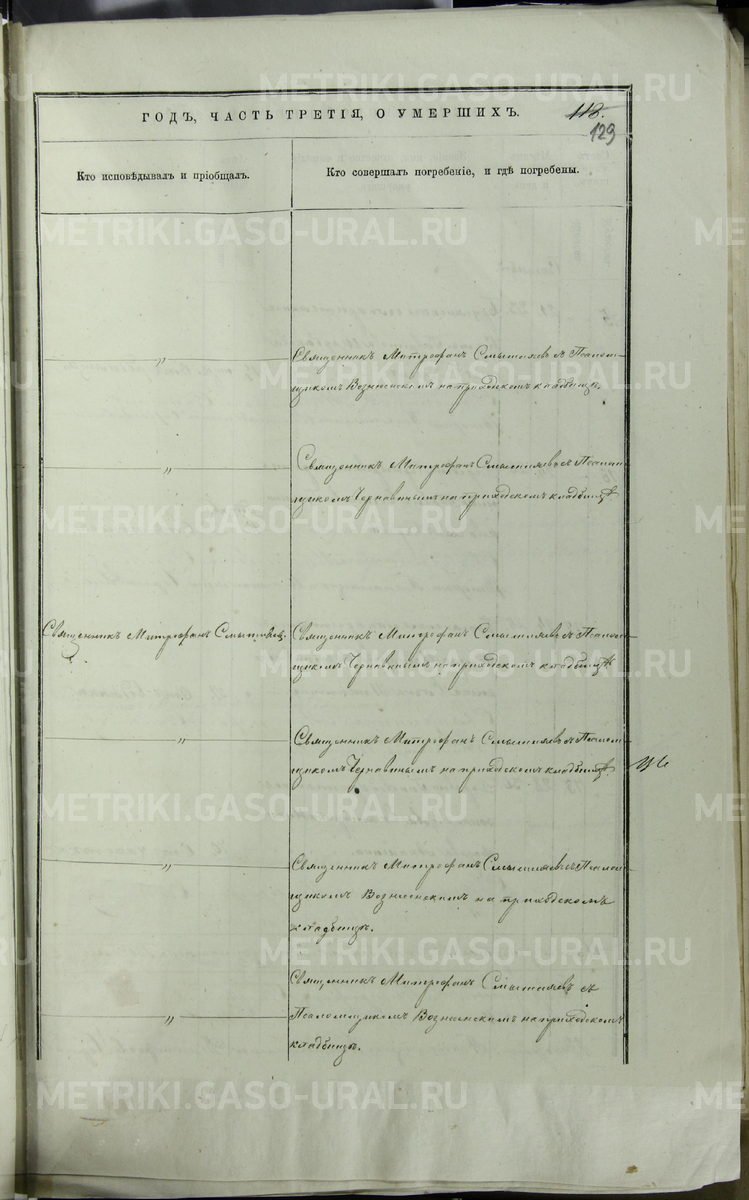 METRIKI.GASO-URAL.RU
ГОДЪ, ЧАСТЬ ТРЕТІЯ, О УМЕРШИХЪ.
118.
129
Кто исповѣдывалъ и пріобщалъ.
Кто совершалъ погребеніе, и гдѣ погребены.
„
Священникъ Митрофанъ Смышляевъ съ Псалом-
щикомъ Вознесенскимъ на приходскомъ кладбищѣ.
„
Священникъ Митрофанъ Смышляевъ съ Псалом-
щикомъ Чернавинымъ на приходскомъ кладбищѣ
Священникъ Митрофанъ Смышляевъ.
Священникъ Митрофанъ Смышляевъ съ Псалом-
щикомъ Чернавинымъ на приходскомъ кладбищѣ
„
Священникъ Митрофанъ Смышляевъ съ Псалом-
щикомъ Чернавинымъ на приходскомъ кладбищѣ.
„
Священникъ Митрофанъ Смышляевъ съ Псалом-
щикомъ Вознесенскимъ на приходскомъ
кладбищѣ.
„
Священникъ Митрофанъ Смышляевъ съ
Псаломщикомъ Вознесенскимъ на приходскомъ
кладбищѣ.